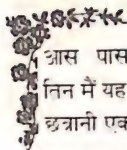 आस पास
तिन मैं यह
छत्रानी एक